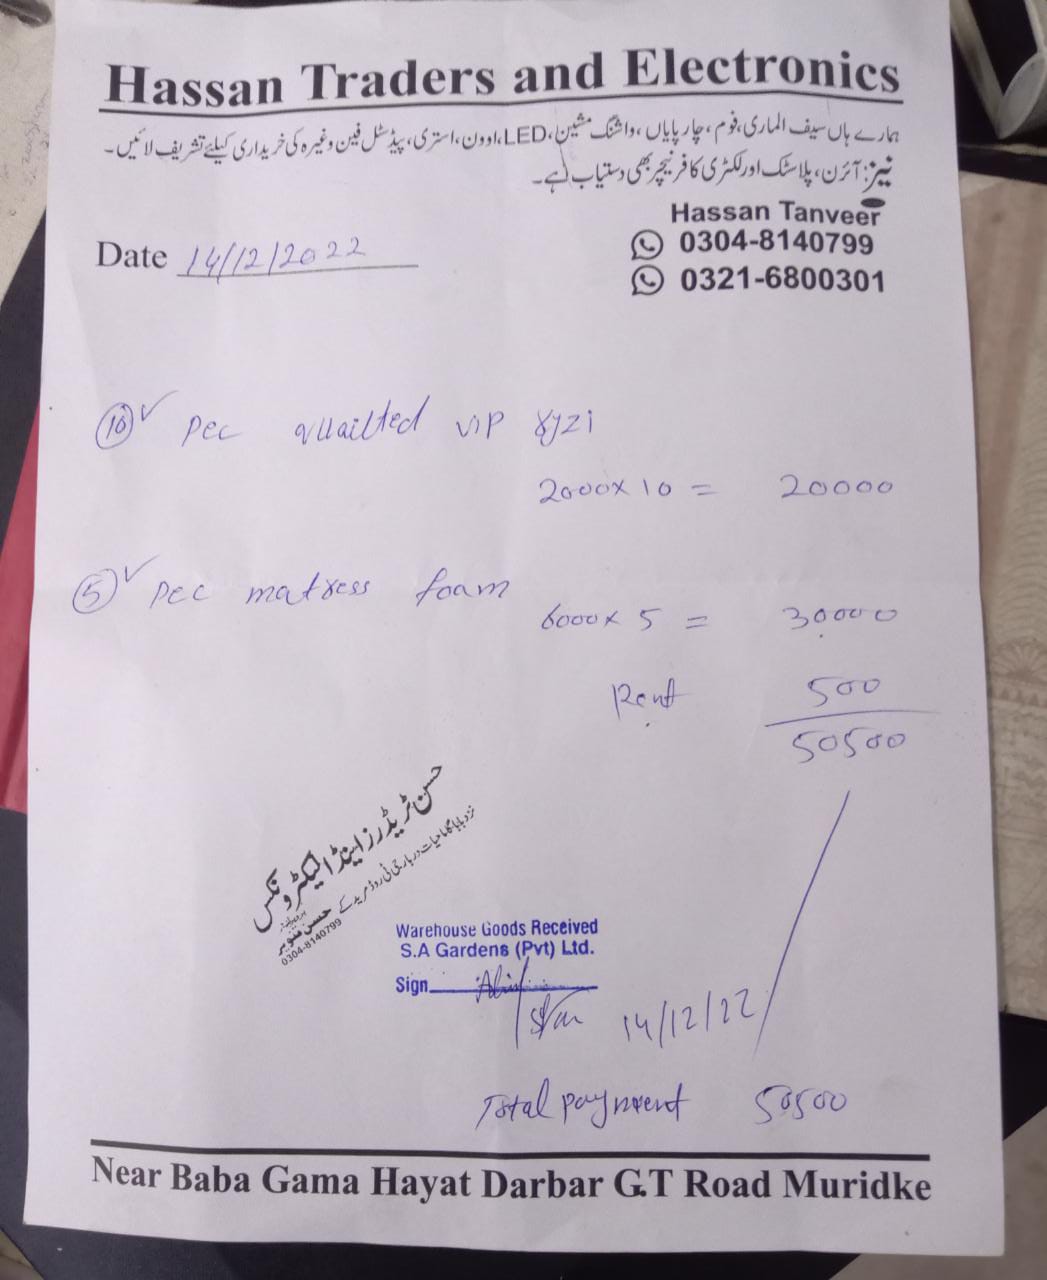 Hassan Traders and Electronics
ہمارے ہاں سیف الماری، فوم، چارپایاں، واشنگ مشین، LED، اوون، استری، پیڈسٹل فین وغیرہ کی خریداری کیلئے تشریف لائیں۔
نیز: آئرن، پلاسٹک اور لکڑی کا فرنیچر بھی دستیاب ہے۔
Hassan Tanveer
0304-8140799
0321-6800301
Date 14/12/2022
10 ✓ Pec quailted vip
2000 x 10 = 20000
5 ✓ Pec matress foam
6000 x 5 = 30000
Rent 500
50500
حسن ٹریڈرز اینڈ الیکٹرونکس
نزد بابا گاما حیات دربار جی ٹی روڈ مریدکے
حسن تنویر
0304-8140799
Warehouse Goods Received
S.A Gardens (Pvt) Ltd.
Sign
14/12/22
Total payment 50500
Near Baba Gama Hayat Darbar G.T Road Muridke